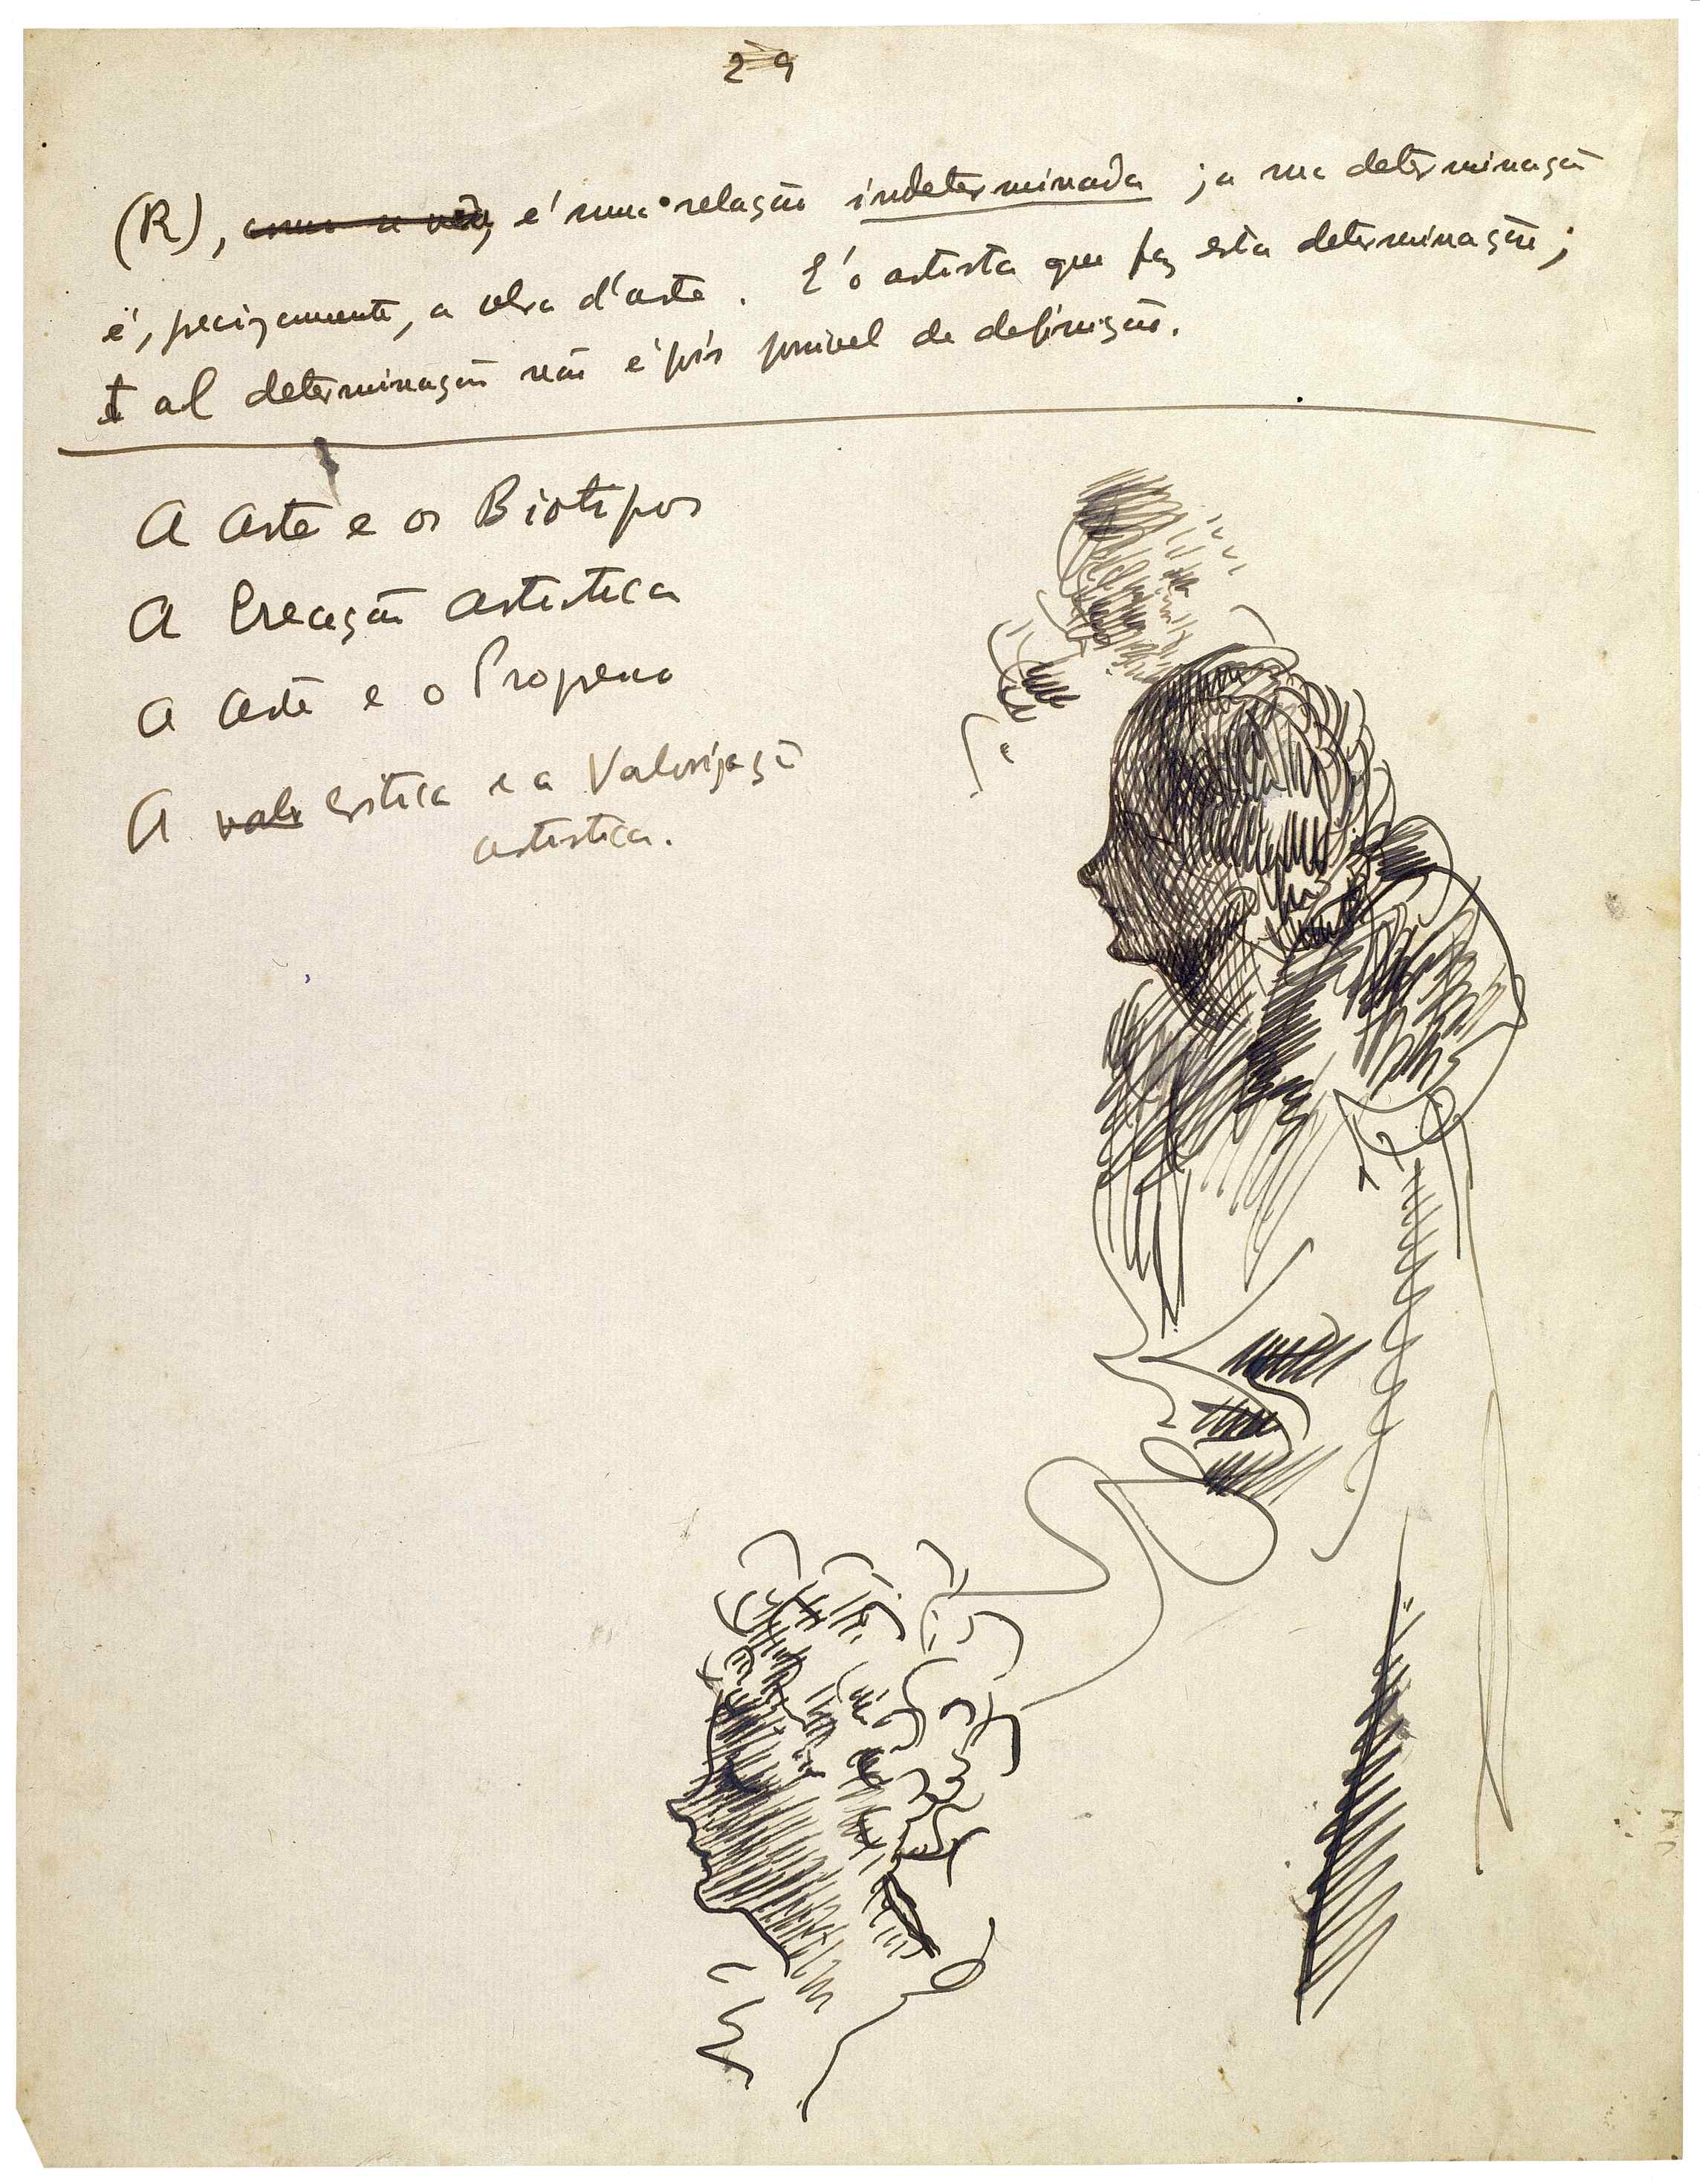 29
(R), como se vê, é uma relação indeterminada; a sua determinação
é, precizamente, a obra d'arte. É o artista que faz esta determinação;
tal determinação não é pois possivel de definição.
A Arte e os Biotipos
A Creação artistica
A Arte e o Progresso
A valo critica e a Valorização
artistica.